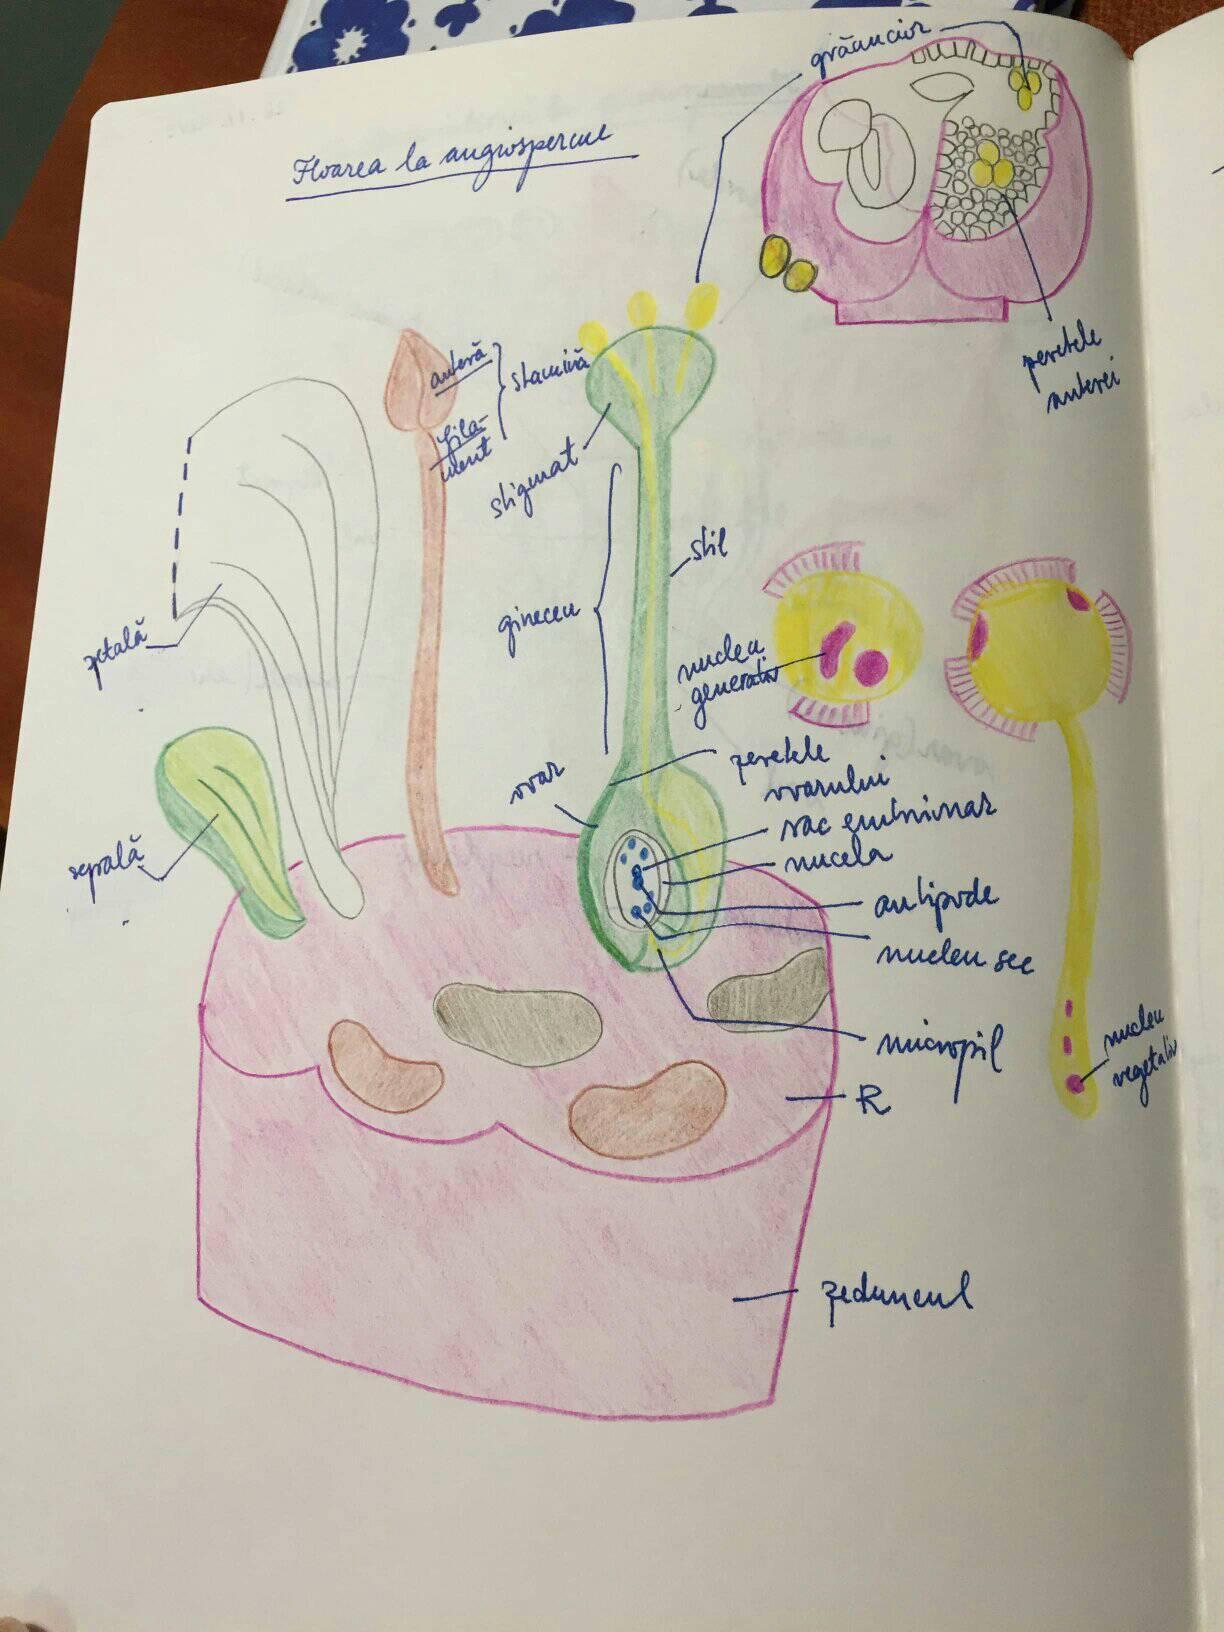 Floarea la angiosperme
grăuncior
peretele
anterei
anteră
fila-
ment
stamină
stigmat
petală
stil
gineceu
nucleu
generativ
sepală
ovar
peretele
ovarului
sac embrionar
nucela
antipode
nucleu sec
micropil
nucleu
vegetativ
R
peduncul